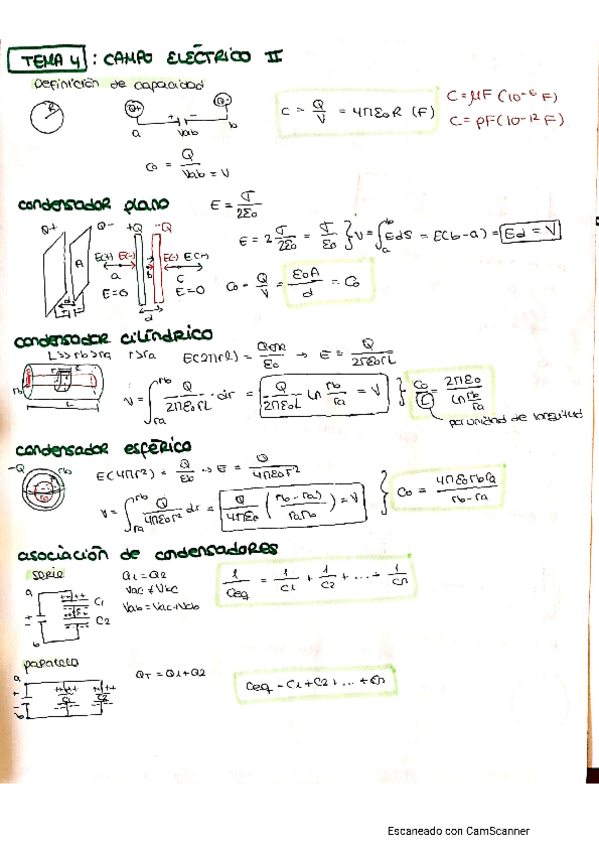 TEMA 4: CAMPO ELÉCTRICO II
Definición de capacidad
R
Q+ Q-
a Vab b
C = Q/V = 4πε0R (F)
C = μF (10^-6 F)
C = pF (10^-12 F)
C0 = Q/Vab = V
condensador plano
E = σ/2ε0
Q+ Q- +Q -Q
E = 2 σ/2ε0 = σ/ε0 } V = ∫_a^b EdS = E(b-a) = Ed = V
A E(+) E(-) E(-) E(+)
a b c
E=0 E=0
d d
C0 = Q/V = ε0A/d = C0
condensador cilíndrico
L>>rb>ra r>ra
E(2πrl) = → E = Q/2πε0rL
rb L
V = ∫_ra^rb Q/2πε0rL · dr = Q/2πε0L ln rb/ra = V } C0/L = 2πε0/ln rb/ra
por unidad de longitud
condensador esférico
-Q rb
E(4πr²) = Q/ε0 → E = Q/4πε0r²
V = ∫_ra^rb Q/4πε0r² dr = Q/4πε0 (rb-ra/rarb) = V } C0 = 4πε0rbra/rb-ra
asociación de condensadores
serie
Q1 = Q2
Vac ≠ Vbc
Vab = Vac+Vcb
1/Ceq = 1/C1 + 1/C2 + ... + 1/Cn
a C1 C2 b
paralelo
QT = Q1+Q2
Ceq = C1+C2+ ... + Cn
a b C1 C2
Escaneado con CamScanner